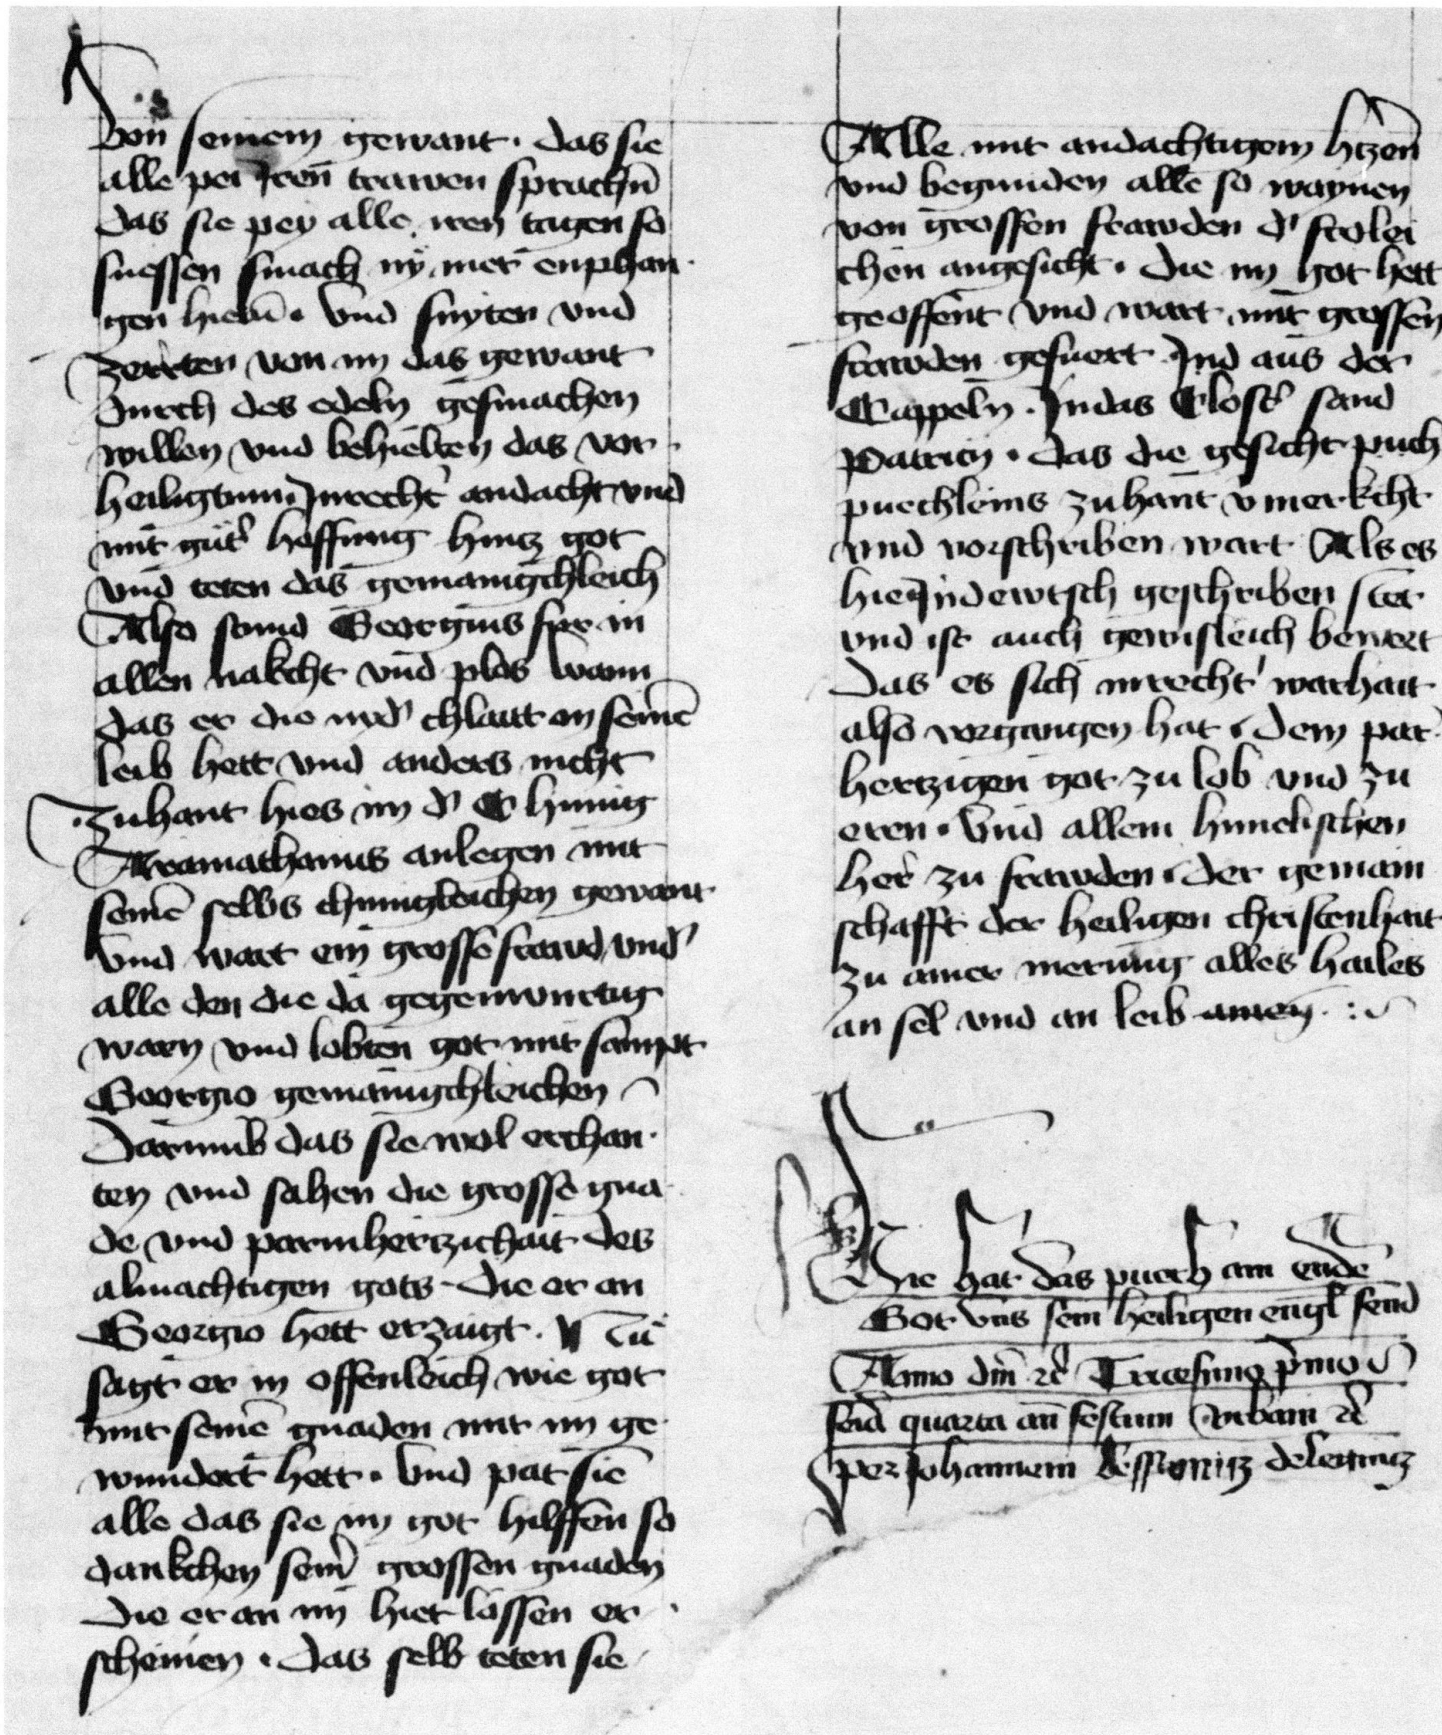 von seinem gewant · das sie
alle pei iren trawen sprachn̄
das sie pey alle iren tagen so
suessen smach ny mer enphan
gen hietn̄ · Vnd snyten vnd
zerrten von im das gewant
durch des edeln gesmachen
willen vnd behielten das vor
heiligtum Inrecht' andacht vnd
mit gut' hoffnung hintz got
vnd teten das gemainigchleich
Also stund Georgius vor in
allen nakcht vnd plos wann
das er die nyd' chlait an seinē
leib hett vnd anders nicht
Zuhant hies im d' Chunig
Aramathanus anlegen mit
seinē selbs chunigleichen gewant
Vnd wart ein grosse frawd vnd'
alle den die da gegenwurtig
warn vnd lobten got mit sampt
Georgio gemainigchleichen
Darumb das sie wol erchan
ten vnd sahen die grosse gna
de vnd parmhertzichait des
almachtigen gots · Die er an
Georgio hett erzaigt · Nu
sagt er in offenleich wie got
mit seinē gnaden mit im ge
wundert hett · Vnd pat sie
alle das sie im got hilffen so
dankchen sein' grossen gnaden
Die er an im hiet lassen er
scheinen · Das selb teten sie
Alle mit andachtigem h'tzen
vnd begunden alle so waynen
von grossen frawden d' frolei
chen angesicht · Die im got hett
geoffent vnd wart mit grossen
frawden gefuert Ind aus der
Cappeln · Indas Clost' sand
Patricij · das die gesicht puch
puechleins zuhant v'merkcht
vnd vorschriben wart Als es
hie Indewtsch geschriben stet
vnd ist auch gewisleich bewert
Das es sich inrecht' warhait
also vorgangen hat · dem par
hertzigen got zu lob vnd zu
eren · Vnd allem himelischen
her zu frawden · der gemain
schafft der heiligen christenhait
zu ainer merung alles hailes
an sel vnd an leib amen
Hie hat das puech ain ende
Got vns sein heiligen engl send
Anno dn̄i rc̄ Tricesimo p̄mo
feid quarta an̄ festum Vrbani rc̄
per Johannem de legnitz